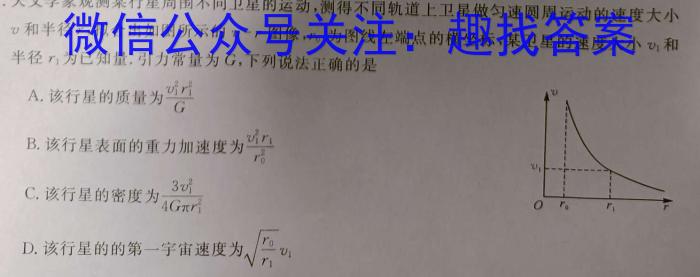 天文学家观测某行星周围不同卫星的运动,测得不同轨道上卫星做匀速圆周运动的速度大小
v和半径
微信公众号关注：趣找答案
图像 为图线左端点的横坐标,某卫星的速度大小v₁和
半径r₁为已知量.引力常量为G,下列说法正确的是
A.该行星的质量为v₁²r₁²/G
B.该行星表面的重力加速度为v₁²r₁/r₀²
C.该行星的密度为3v₁²/4Gπr₁²
D.该行星的的第一宇宙速度为√(r₀/r₁)v₁
v
v₁
O r₀ r₁ r